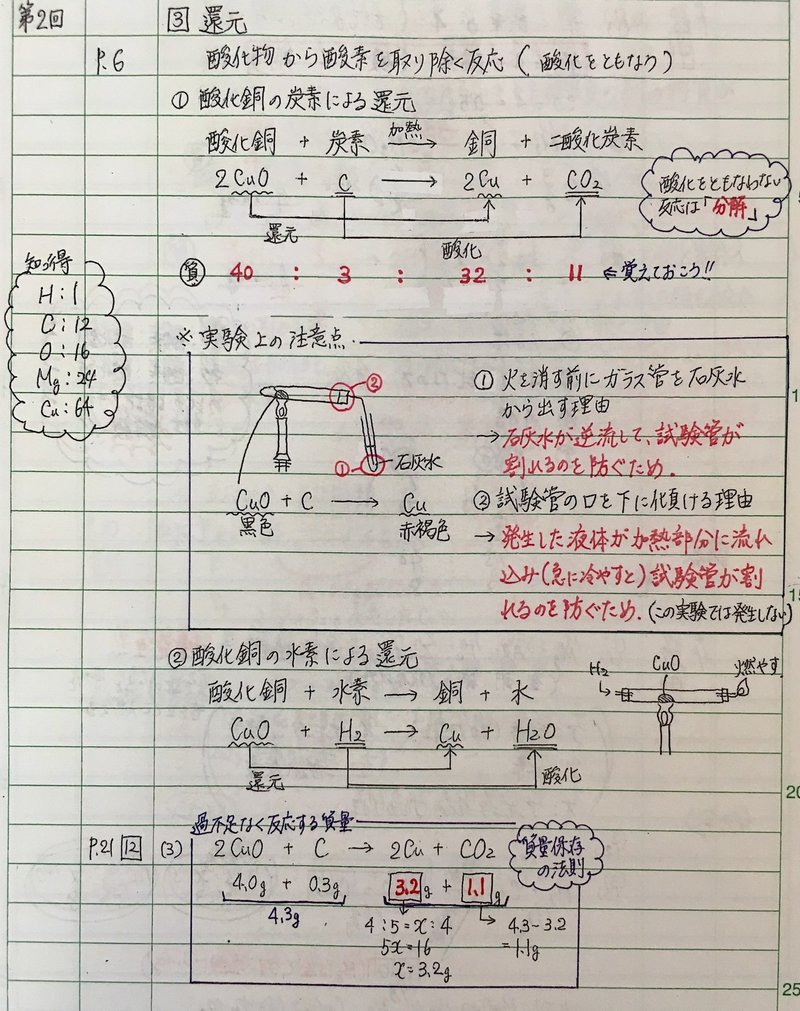 第2回
③ 還元
P.6
酸化物から酸素を取り除く反応(酸化をともなう)
① 酸化銅の炭素による還元
酸化銅 + 炭素 加熱→ 銅 + 二酸化炭素
2CuO + C → 2Cu + CO2
還元
酸化
酸化をともなわない
反応は「分解」
質 40 : 3 : 32 : 11 ⇐覚えておこう!!
知っ得
H:1
C:12
O:16
Mg:24
Cu:64
※実験上の注意点
②
①
石灰水
CuO + C → Cu
黒色
赤褐色
① 火を消す前にガラス管を石灰水
から出す理由
→石灰水が逆流して、試験管が
割れるのを防ぐため.
② 試験管の口を下に傾ける理由
→ 発生した液体が加熱部分に流れ
込み(急に冷やすと)試験管が割
れるのを防ぐため.(この実験では発生しない)
②酸化銅の水素による還元
酸化銅 + 水素 → 銅 + 水
CuO + H2 → Cu + H2O
還元
酸化
H2
CuO
燃やす
過不足なく反応する質量
P.21 12 (3) 2CuO + C → 2Cu + CO2
質量保存
の法則
4.0g + 0.3g 3.2g + 1.1g
4.3g
4:5=x:4
5x=16
x=3.2g
4.3-3.2
=1.1g
10
15
20
25